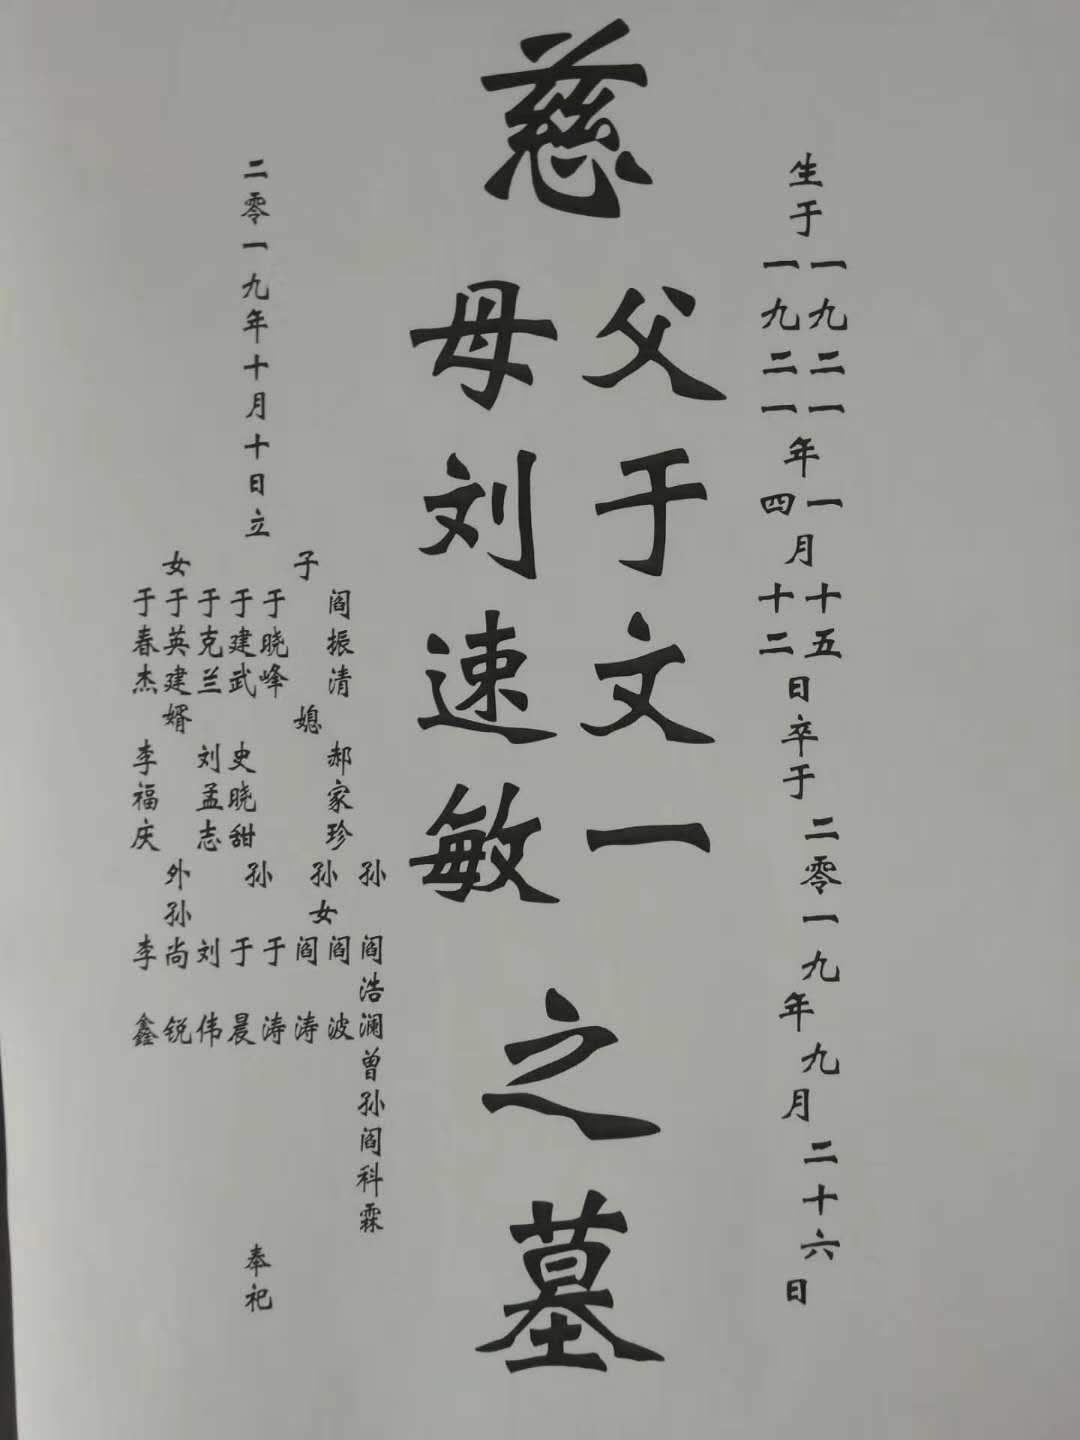 生于一九二一年一月十五日卒于二零一九年九月二十六日
一九二一 四 十二
慈
父于文一
母刘速敏
之墓
子 阎振清 于晓峰 于建武
女 于克兰 于英建 于春杰
媳 郝家珍 史晓甜
婿 刘孟志 李福庆
孙 阎浩澜
孙女 阎波 阎涛
孙 于涛 于晨
外孙 刘伟 尚锐 李鑫
曾孙 阎科霖
奉祀
二零一九年十月十日立